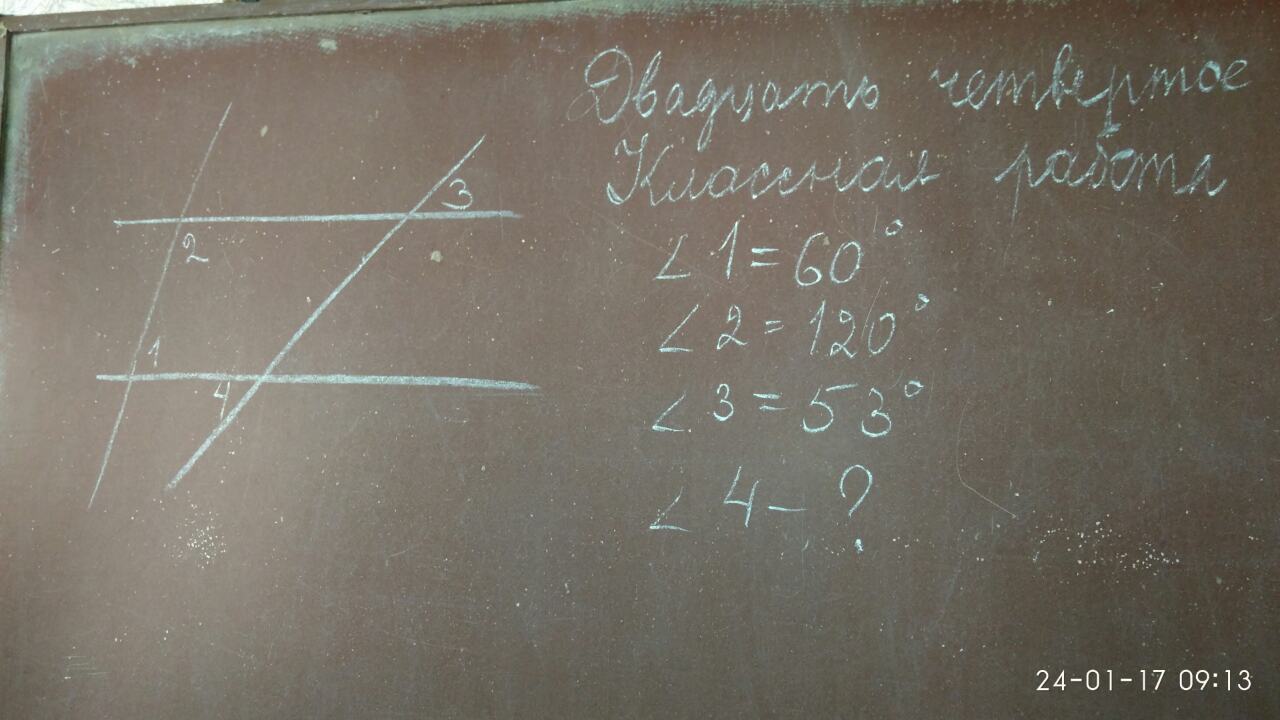 Двадцать четвертое
Классная работа
3
2
1
4
∠ 1 = 60°
∠ 2 = 120°
∠ 3 = 53°
∠ 4 - ?
24-01-17 09:13